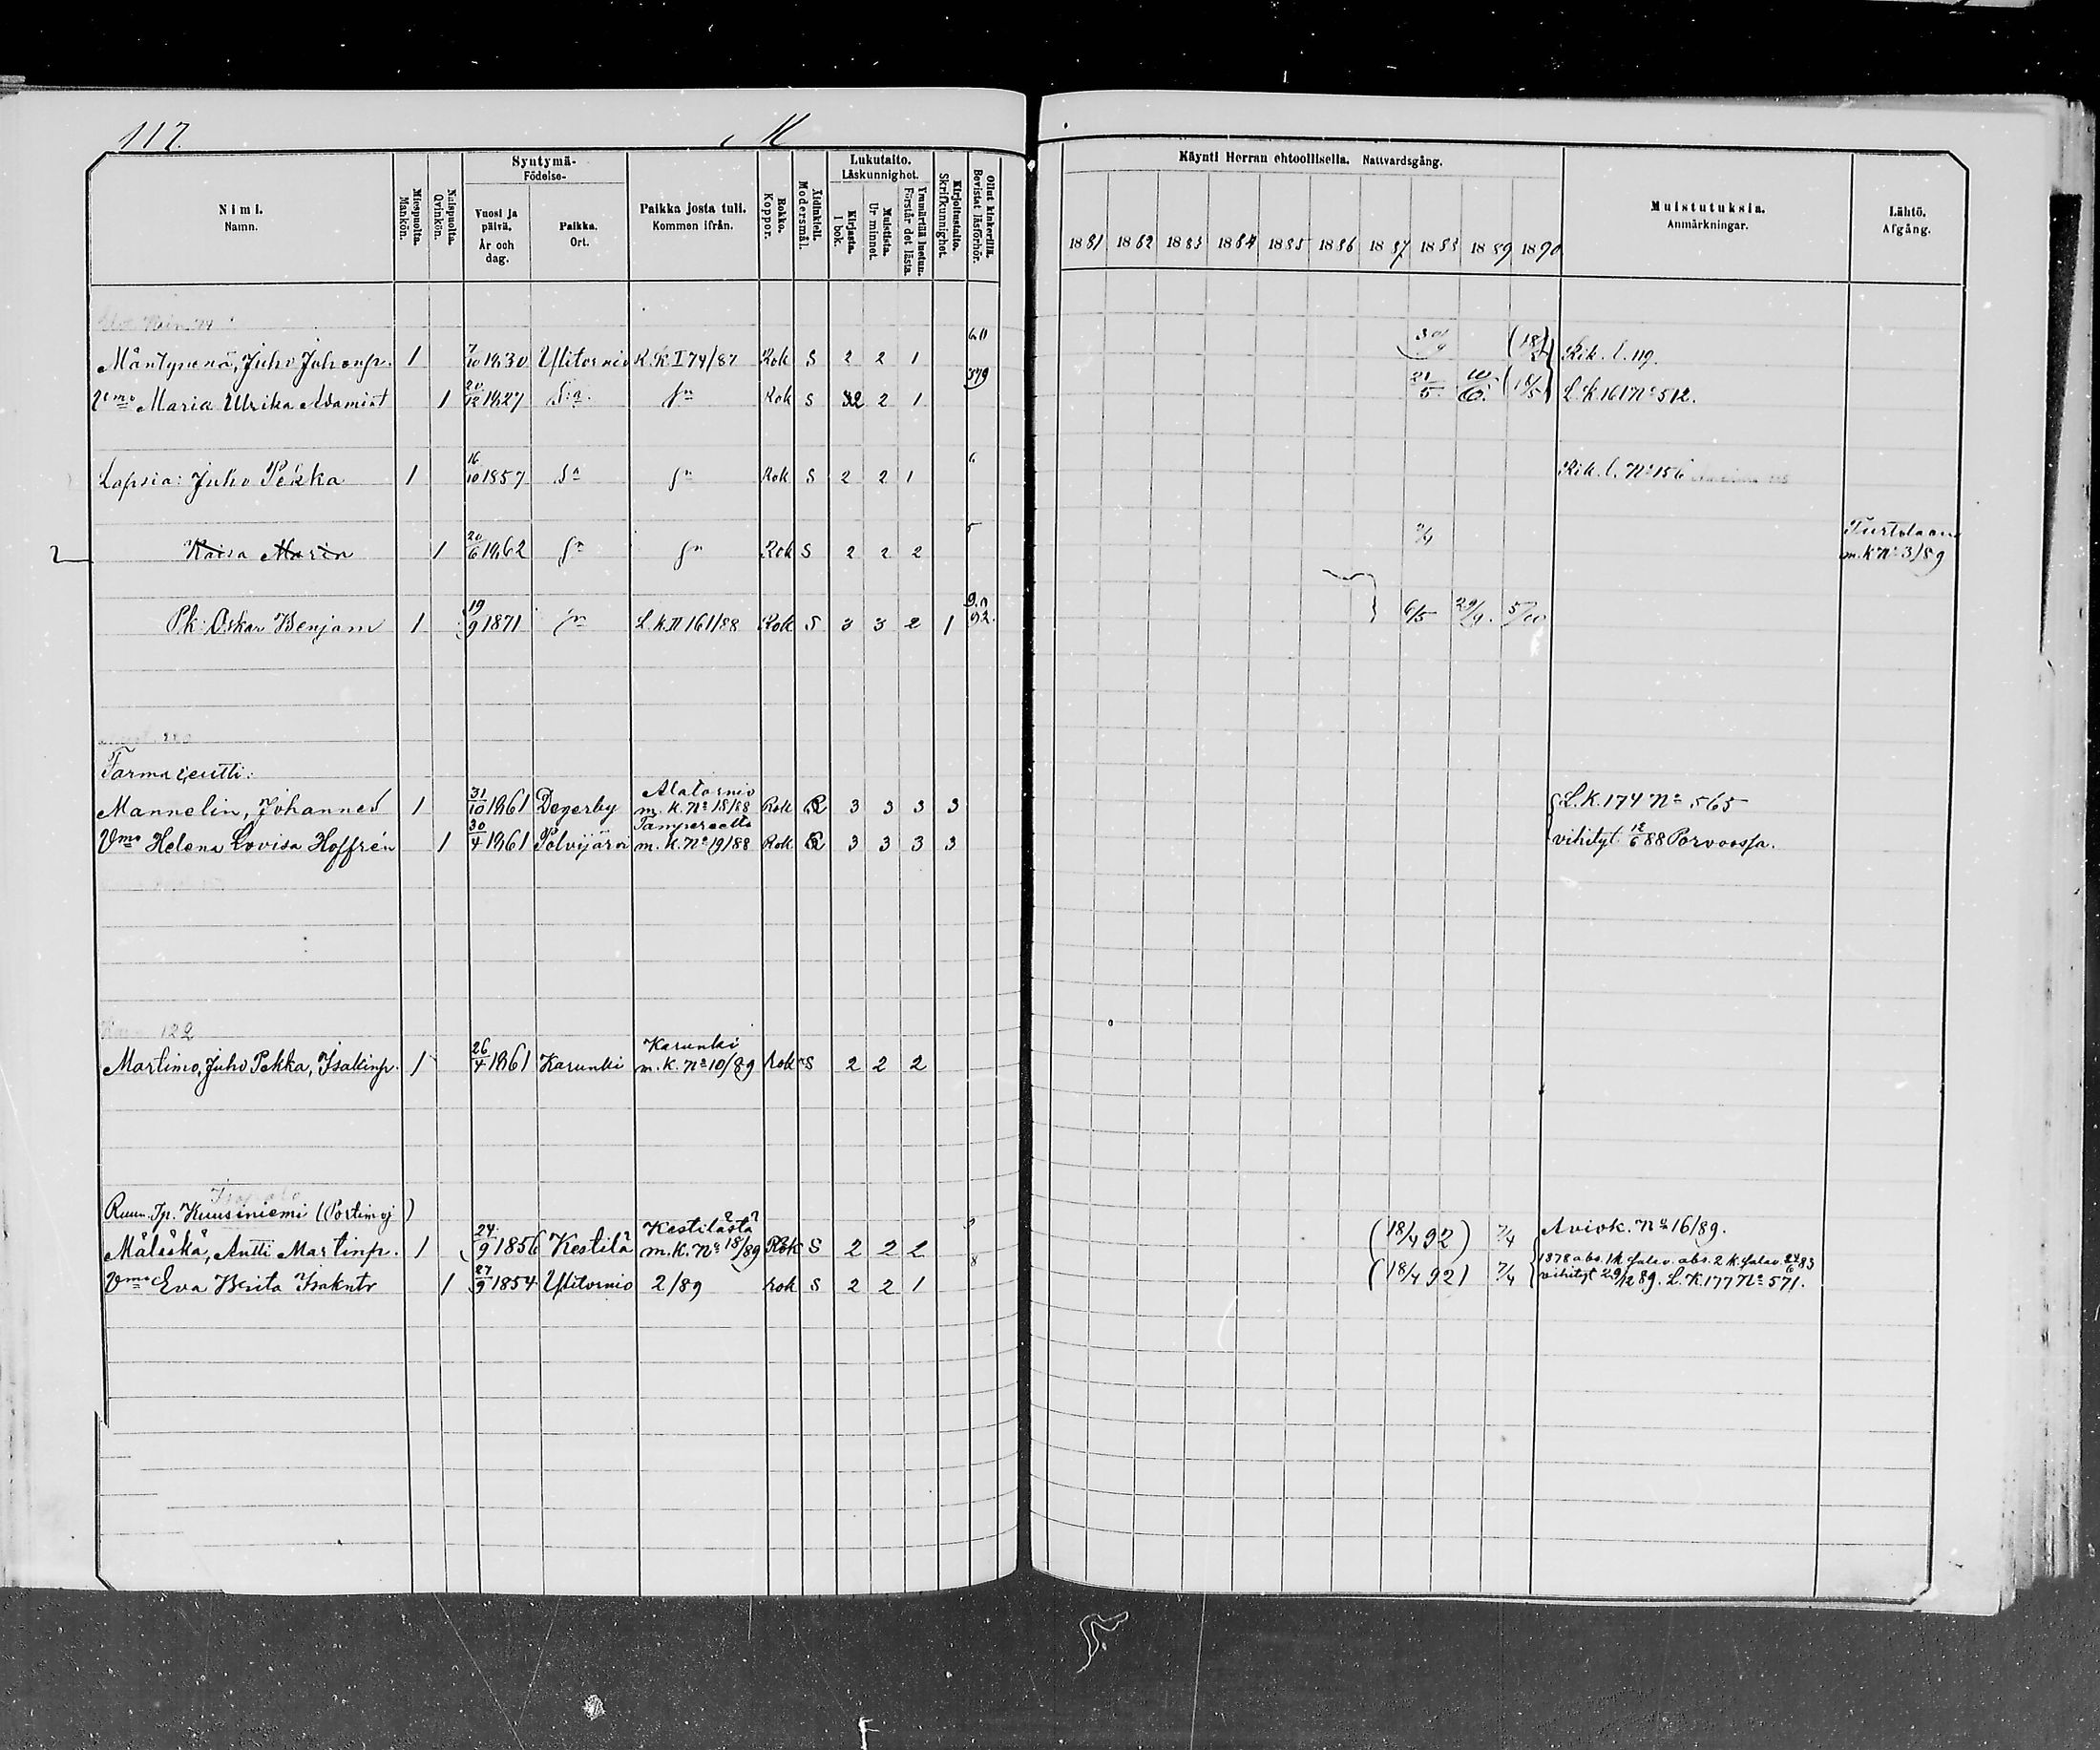 117.
M
Nimi.
Namn.
Miespuolta.
Mankön.
Naispuolta.
Qvinkön.
Syntymä-
Födelse-
Vuosi ja päivä.
År och dag.
Paikka.
Ort.
Paikka josta tuli.
Kommen ifrån.
Rokko.
Koppor.
Äidinkieli.
Modersmål.
Lukutaito.
Läskunnighet.
Kirjasta.
I bok.
Muistista.
Ur minnet.
Ymmärtää luetun.
Förstår det lästa.
Kirjoitustaito.
Skrifkunnighet.
Ollut kinkerillä.
Bevistat läsförhör.
Käynti Herran ehtoollisella. Nattvardsgång.
1881 1882 1883 1884 1885 1886 1887 1888 1889 1890
Muistutuksia.
Anmärkningar.
Lähtö.
Afgång.
Mäntypenä, Juho Juhonp. 1 7/10 1830 Ylitornio R.K. I 74/87 Rok S 2 2 1 Rik. l. 119.
Vmo Maria Ulrika Adamint 1 20/12 1827 S:a. Sn Rok S 2 2 1 379 21/5 (18/5) L.K. 161 No 512.
Lapsia: Juho Pekka 1 16/10 1857 Sn Sn Rok S 2 2 1 6 Rik. l. No 156
Kaisa Maria 1 20/6 1862 Sn Sn Rok S 2 2 2 5 Turtolaan
m.k No 3/89
Pk: Oskar Benjam 1 19/9 1871 Sn L.K. II 161/88 Rok S 3 3 2 1 92. 6/5 29/9. 5/10
Farmaseutti:
Mannelin, Johannes 1 31/10 1861 Degerby Alatornio m.K. No 18/88 Rok R 3 3 3 3 L.K. 174 No 565
Vmo Helena Lovisa Hoffrén 1 30/4 1861 Polvijärvi Tampereelta m.K. No 19/88 Rok R 3 3 3 3 vihityt 12/6 88 Porvoossa.
122
Martimo, Juho Pekka, Isakinp. 1 26/4 1861 Karunki Karunki m.K. No 10/89 Rok S 2 2 2
Ruun. Tp. Kuusiniemi (Portimoj)
Määskä, Antti Martinp. 1 24/9 1856 Kestilä Kestilästä m.K. No 18/89 Rok S 2 2 2 (18/4 92) 7/4 Aviok. No 16/89.
Vmo Eva Brita Isakntr 1 27/9 1854 Ylitornio 2/89 Rok S 2 2 1 8 (18/4 92) 7/4 1878 abs. 1 k salav. abs. 2 k. salav. 24/6 83
vihityt 29/12 89. L.K. 177 No 571.